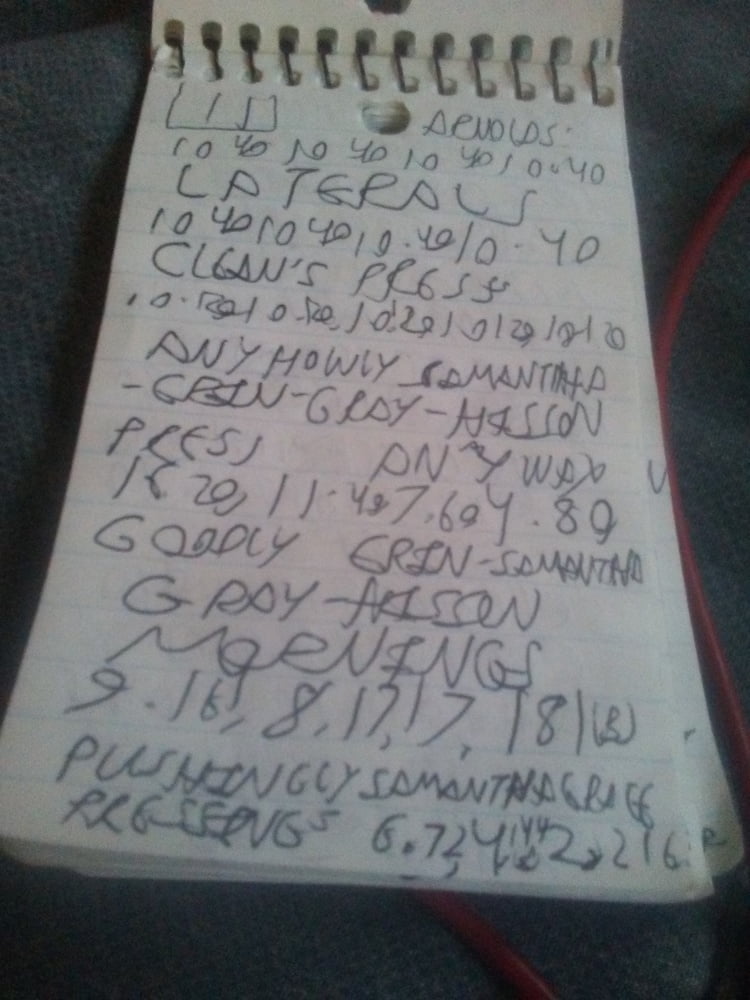 ARNOLDS:
10 40 10 40 10 40 10.40
LATERALS
10 40 10 40 10.40 10.40
CLEAN'S PRESS
ANYHOWLY SAMANTHA
-ERIN-GRAY-HISSON
PRESS ANYWAY
15.20, 11.40, 7.60, 4.80
GOODLY ERIN-SAMANTHA
GRAY-HISSON
MORNINGS
9.16, 8,17,17, 181(B)
PUSHINGLY SAMANTHA
6.72, 4.144, 2.216